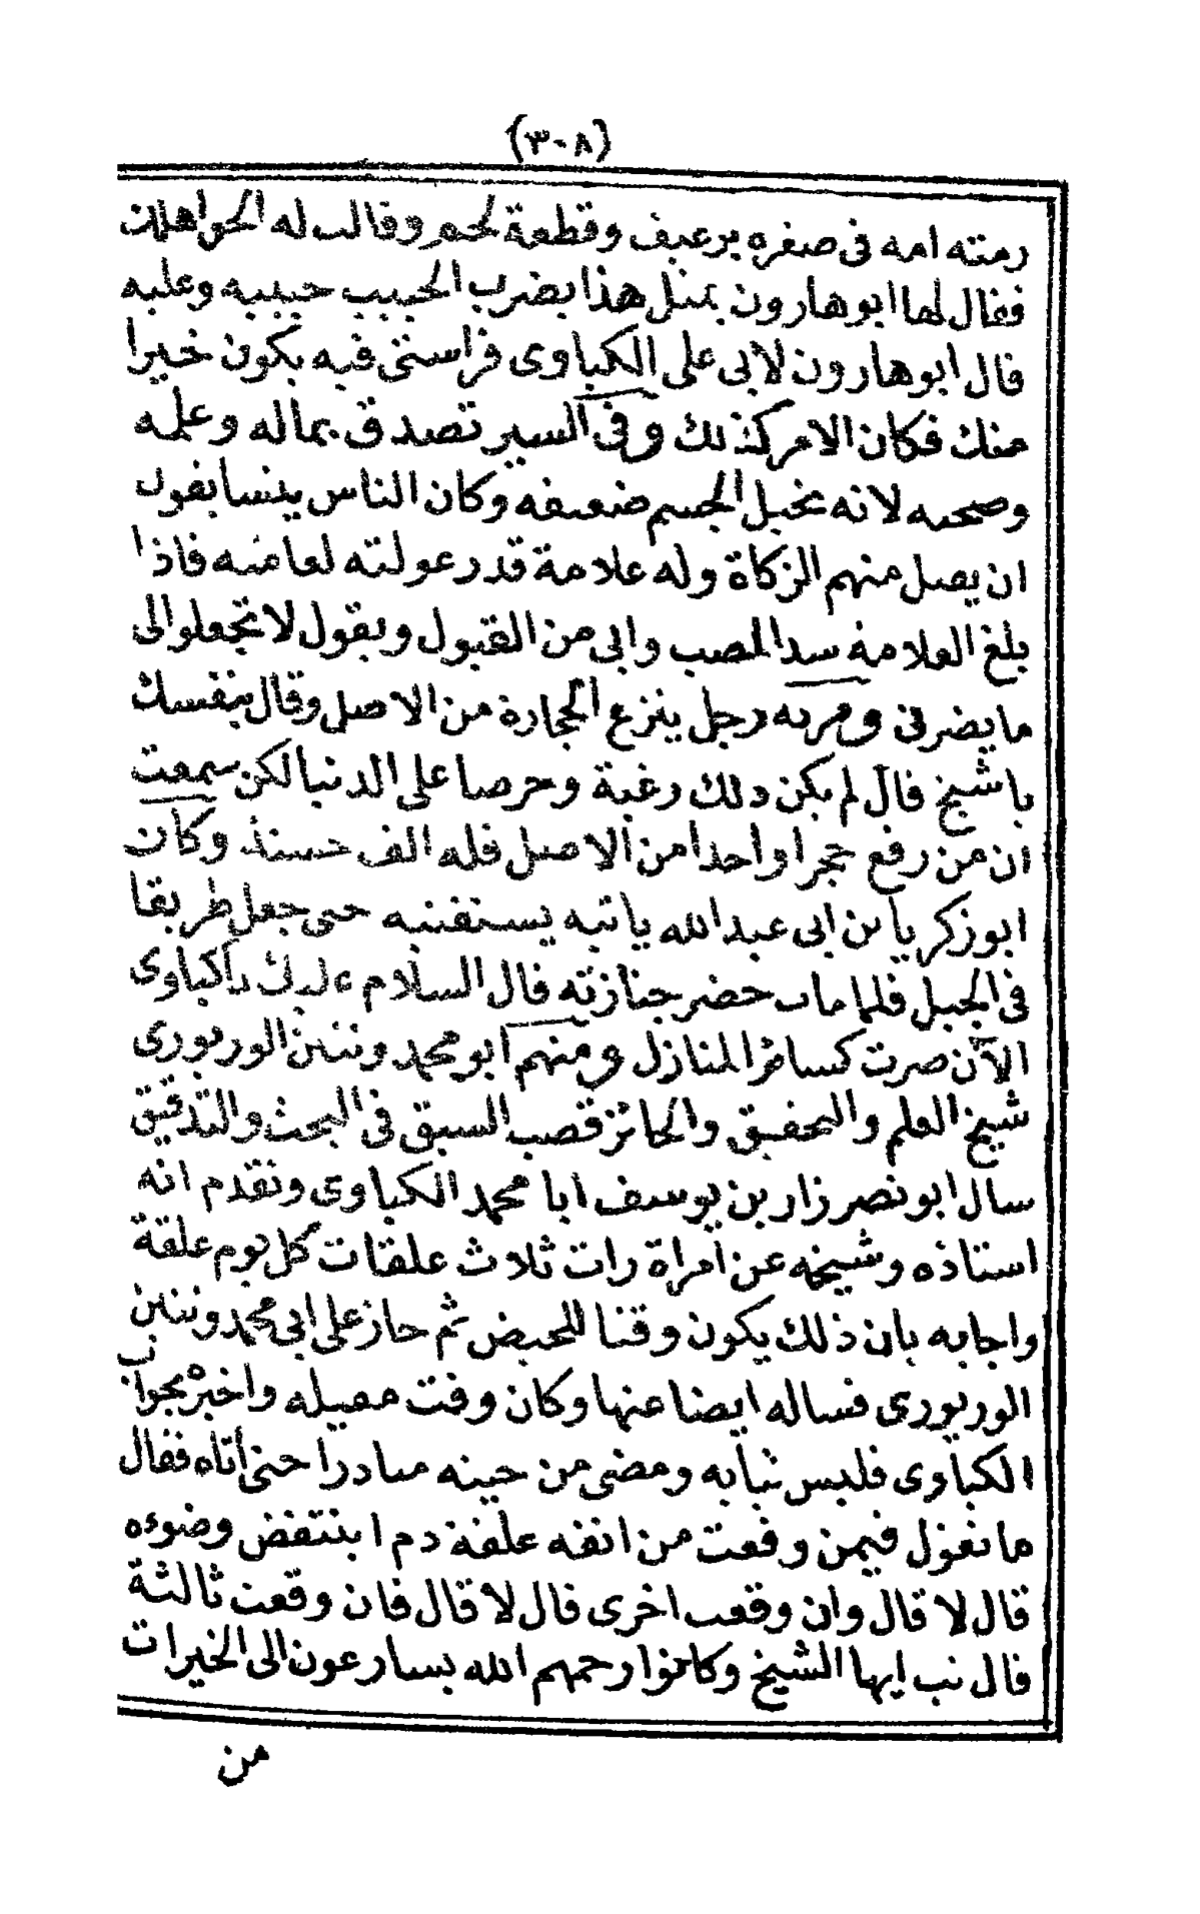 (٣٠٨)
رمته امه فى صغره برغيف وقطعة لحم وقالت له الحق اهلك
فقال لها ابو هارون بمثل هذا يضرب الحبيب حبيبه وعليه
قال ابو هارون لابى على الكباوى فراستى فيه يكون خيرا
منك فكان الامر كذلك وفى السير تصدق بماله وعلمه
وصحته لانه نخيل الجسم ضعيفه وكان الناس ينسا يقول
ان يصل منهم الزكاة وله علامة قدر عولته لعامه فاذا
بلغ العلامة سد المصب وابى من القبول ويقول لا تجعلوا لى
ما يضرنى ومر به رجل ينزع الحجارة من الاصل وقال بنفسك
يا شيخ قال لم يكن ذلك رغبة وحرصا على الدنيا لكن سمعت
ان من رفع حجرا واحدا من الاصل فله الف حسنة وكان
ابو زكرياء بن ابى عبد الله ياتيه يستفتيه حتى جعل طريقا
فى الجبل فلما مات حضر جنازته قال السلام عليك يا كباوى
الآن صرت كسائر المنازل ومنهم ابو محمد ونتين الوريورى
شيخ العلم والتحقيق والحائز قصب السبق فى البحث والتدقيق
سال ابو نصر زار بن يوسف ابا محمد الكباوى وتقدم انه
استاذه وشيخه عن امراة رات ثلاث علقات كل يوم علقة
واجابه بان ذلك يكون وقتا للحيض ثم جاز على ابى محمد ونتين
الوريورى فساله ايضا عنها وكان وقت مقيله واخبره بجواب
الكباوى فلبس ثيابه ومضى من حينه مبادرا حتى أتاه فقال
ما تقول فيمن وقعت من انفه علقة دم اينتقض وضوءه
قال لا قال وان وقعت اخرى قال لا قال فان وقعت ثالثة
قال تب ايها الشيخ وكانوا رحمهم الله يسارعون الى الخيرات
من